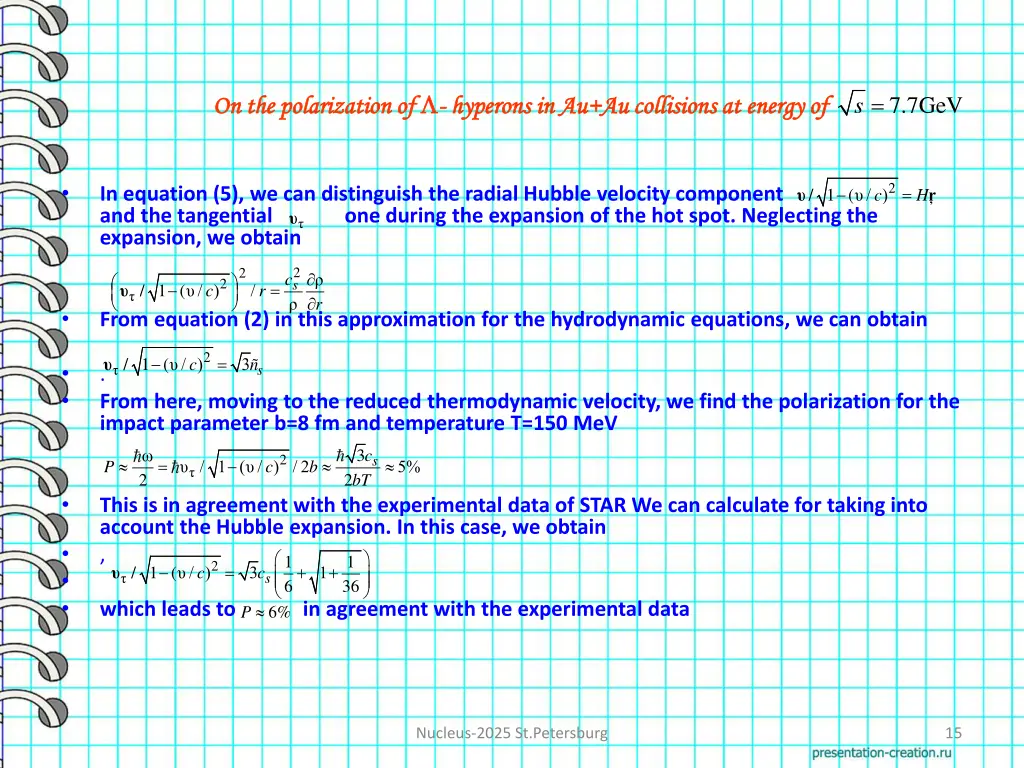 On the polarization of Λ- hyperons in Au+Au collisions at energy of √s = 7.7GeV
• In equation (5), we can distinguish the radial Hubble velocity component υ/√(1−(υ/c)²) = Hr,
and the tangential υ_τ one during the expansion of the hot spot. Neglecting the
expansion, we obtain
(υ_τ/√(1−(υ/c)²))²/r = (c_s²/ρ)(∂ρ/∂r)
• From equation (2) in this approximation for the hydrodynamic equations, we can obtain
• υ_τ/√(1−(υ/c)²) = √3ñ_s
.
• From here, moving to the reduced thermodynamic velocity, we find the polarization for the
impact parameter b=8 fm and temperature T=150 MeV
P ≈ ħω/2 = ħυ_τ/√(1−(υ/c)²)/2b ≈ ħ√3c_s/2bT ≈ 5%
• This is in agreement with the experimental data of STAR We can calculate for taking into
account the Hubble expansion. In this case, we obtain
• ,
• υ_τ/√(1−(υ/c)²) = √3c_s(1/6 + √(1+1/36))
• which leads to P ≈ 6% in agreement with the experimental data
Nucleus-2025 St.Petersburg
15
presentation-creation.ru